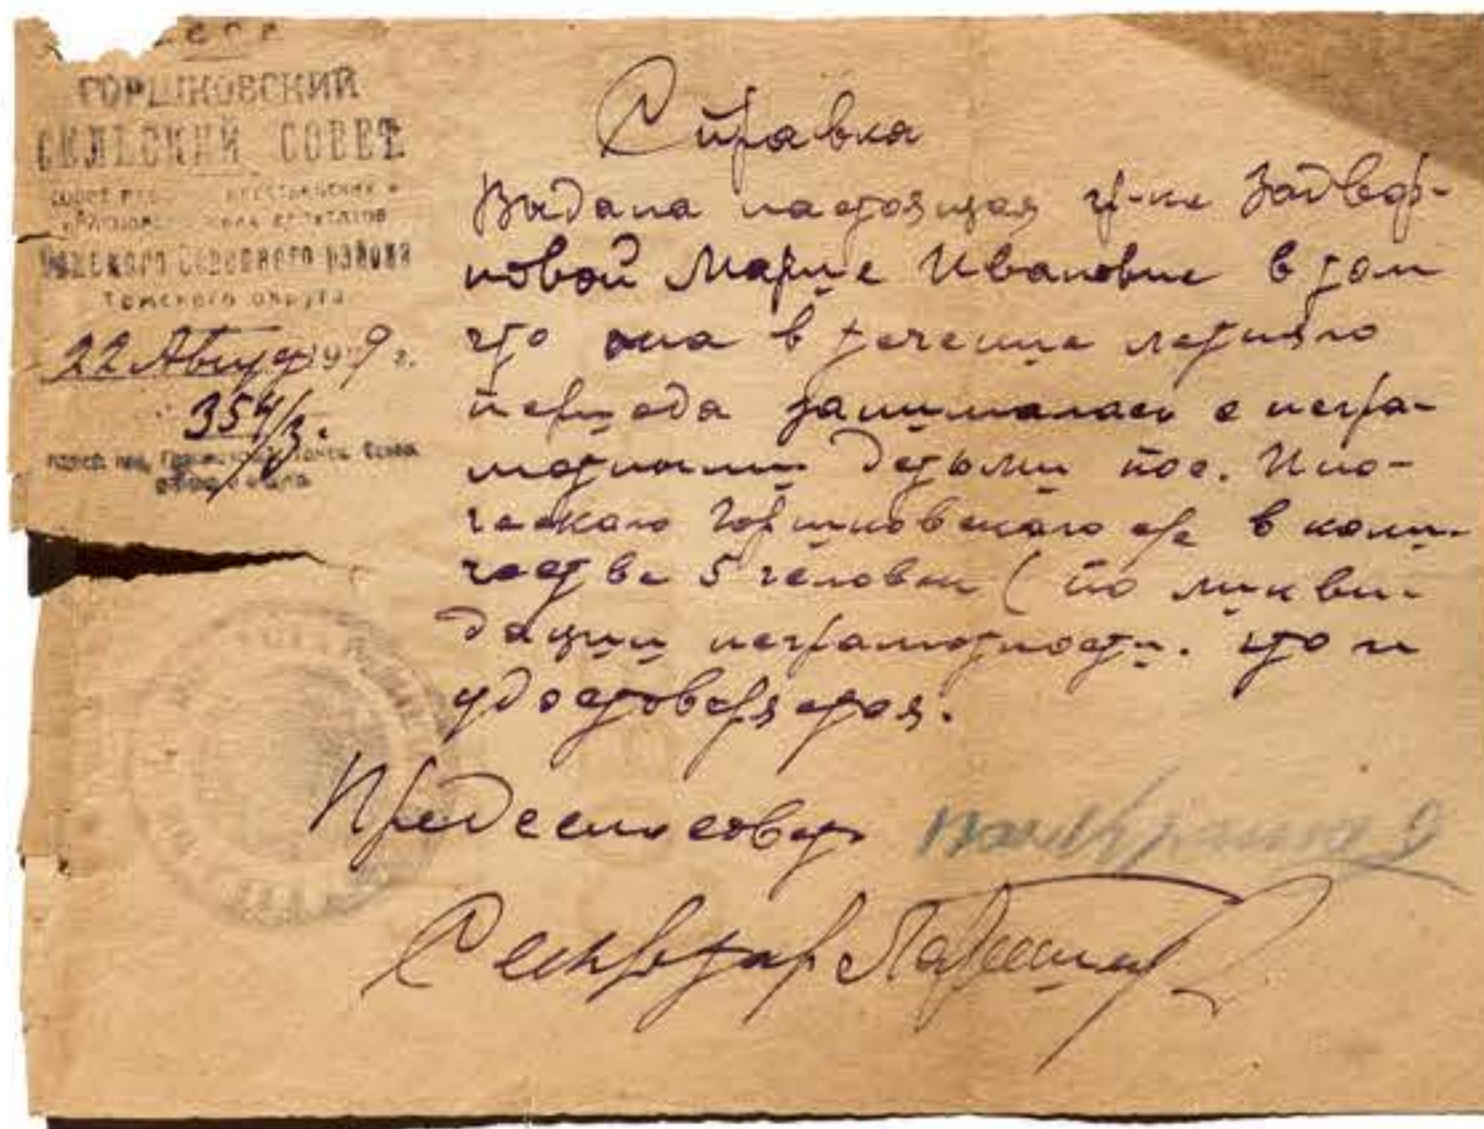 ГОРШКОВСКИЙ
СЕЛЬСКИЙ СОВЕТ
Томского округа
22 Август 19 9 г.
354/3.
Справка
Выдана настоящая гр-ке Задвор-
новой Марие Ивановне в том
что она в течение летняго
периода занималась с негра-
мотными детьми пос.
Горшковскаго с/с в коли-
честве 5 человек (по ликви-
дации неграмотности. что и
удостоверяется.
Предсельсовет
Секретарь